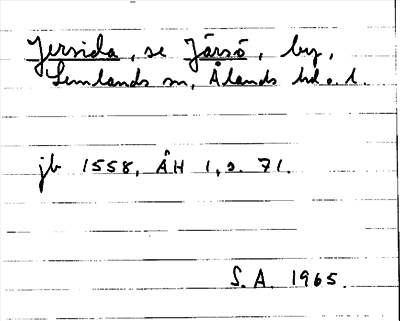 Jersida, se Järsö, by,
Lemlands sn, Ålands hd o. l.
jb 1558, ÅH 1, s. 71.
S. A. 1965.